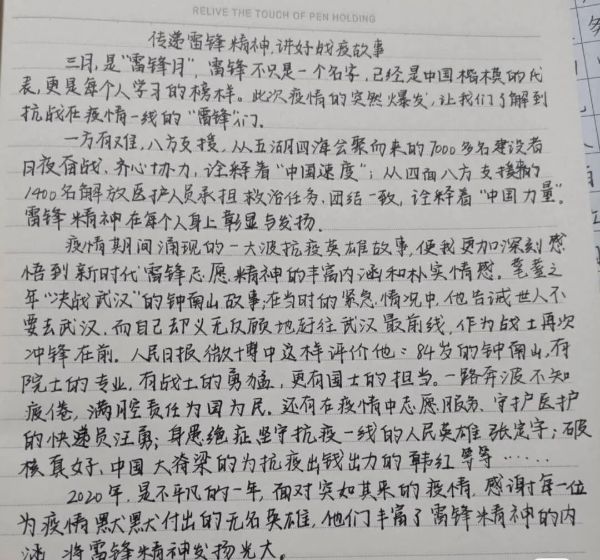 RELIVE THE TOUCH OF PEN HOLDING
传递雷锋精神,讲好战疫故事
三月,是“雷锋月”,雷锋不只是一个名字,已经是中国楷模的代
表,更是每个人学习的榜样。此次疫情的突然爆发,让我们了解到
抗战在疫情一线的“雷锋”们.
一方有难,八方支援,从五湖四海会聚而来的7000多名建设者
日夜奋战、齐心协力,诠释着“中国速度”;从四面八方支援来的
1400名解放医护人员承担救治任务.团结一致,诠释着“中国力量”.
雷锋精神在每个人身上彰显与发扬.
疫情期间涌现的一大波抗疫英雄故事,使我更加深刻感
悟到新时代雷锋志愿精神的丰富内涵和朴实情感.耄耋之
年“决战武汉”的钟南山故事;在当时的紧急情况中,他告诫世人不
要去武汉,而自己却义无反顾地赶往武汉最前线,作为战士再次
冲锋在前。人民日报微博中这样评价他:84岁的钟南山,有
院士的专业,有战士的勇猛,更有国士的担当。一路奔波不知
疲倦,满腔责任为国为民。还有在疫情中志愿服务、守护医护
的快递员汪勇;身患绝症坚守抗疫一线的人民英雄张定宇;破
核真好、中国大脊梁的为抗疫出钱出力的韩红等等……
2020年,是不平凡的一年,面对突如其来的疫情,感谢每一位
为疫情默默付出的无名英雄,他们丰富了雷锋精神的内
涵,将雷锋精神发扬光大。